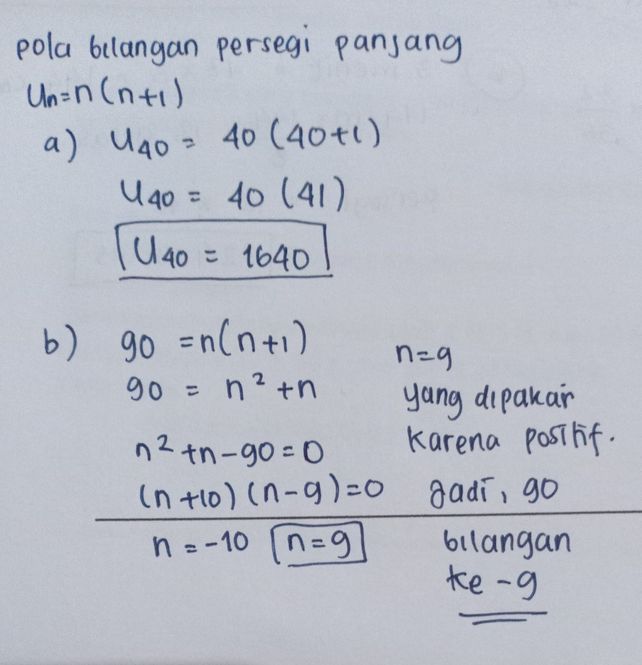 pola bilangan persegi panjang
Un=n(n+1)
a) U40 = 40(40+1)
U40 = 40(41)
U40 = 1640
b) 90 = n(n+1)
90 = n²+n
n²+n-90=0
(n+10)(n-9)=0
n = -10 n=9
n=9
yang dipakai
karena positif.
Jadi, 90
bilangan
ke-9